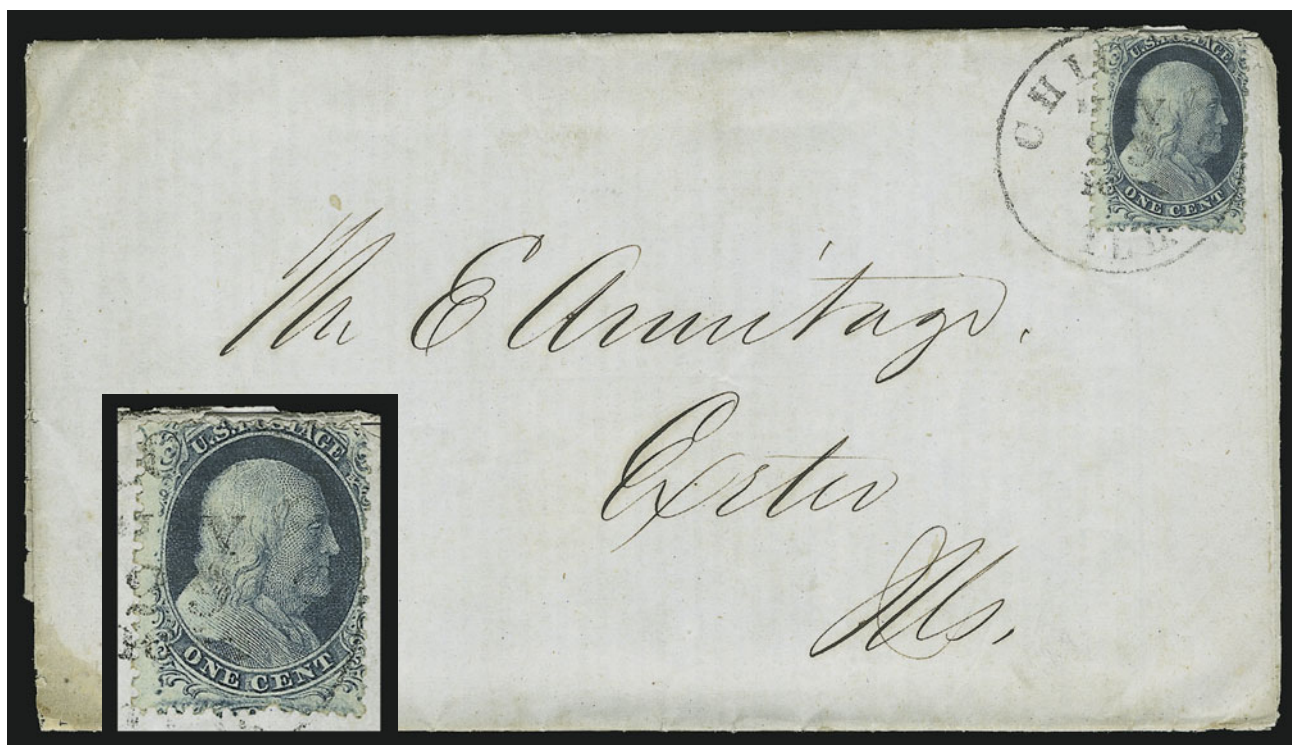 U.S. POSTAGE
ONE CENT
CHI
ILL
Mr E Armitage.
Exeter
Ills.
U.S. POSTAGE
ONE CENT